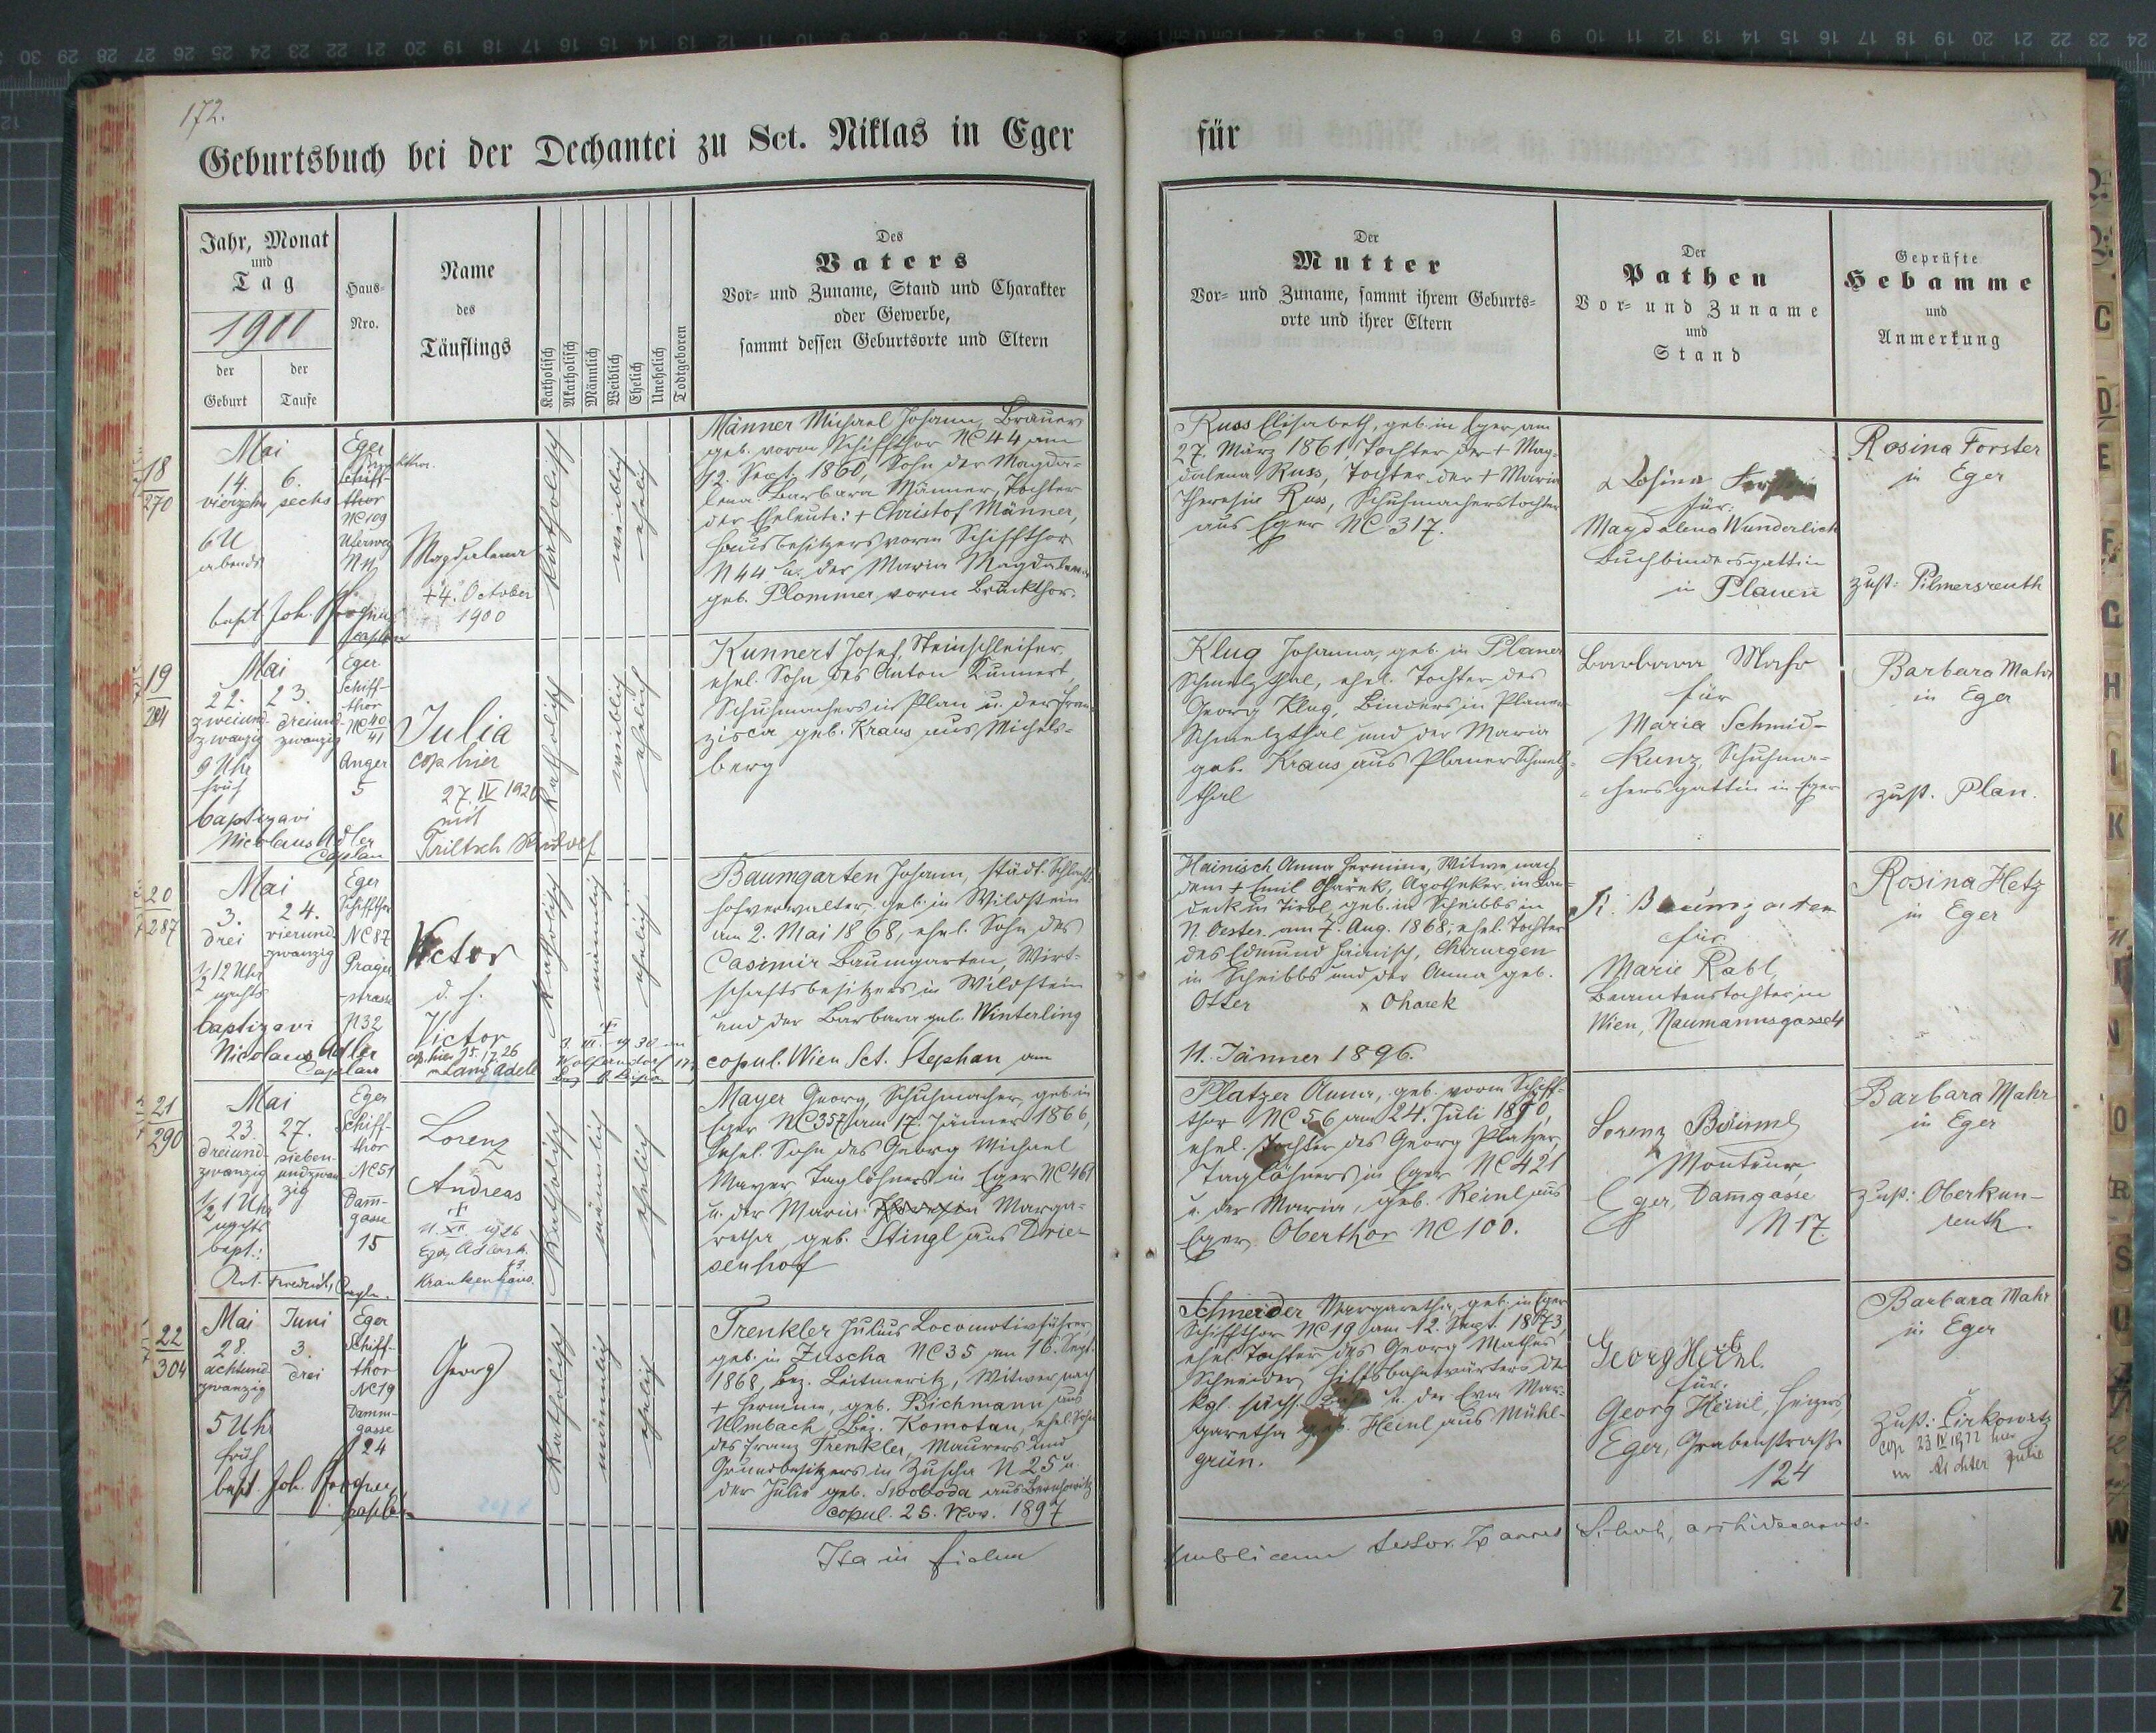 172.
Geburtsbuch bei der Dechantei zu Sct. Niklas in Eger
für
Jahr, Monat
und
Tag
der
Geburt
der
Taufe
Haus-
Nro.
Name
des
Täuflings
Katholisch
Akatholisch
Männlich
Weiblich
Ehelich
Unehelich
Todtgeboren
Des
Vaters
Vor- und Zuname, Stand und Charakter
oder Gewerbe,
sammt dessen Geburtsorte und Eltern
Der
Mutter
Vor- und Zuname, sammt ihrem Geburts-
orte und ihrer Eltern
Der
Pathen
Vor- und Zuname
und
Stand
Geprüfte
Hebamme
und
Anmerkung
18
270
Mai
14. 6.
vierzehn sechs
6 U
abends
bapt. Joh.
Eger
Schiff-
thor
NC 109
Uferweg
N 11
Magdalena
+ 4. October
1900
katholisch
weiblich
ehelich
Männer Michael Johann, Brauer
geb. vorm Schiffthor NC 44 am
12. Sept. 1860, Sohn der Magda-
lena Barbara Männer, Tochter
der Eheleute: + Christof Männer,
Hausbesitzers vorm Schiffthor
N 44 u. der Maria Magdalena
geb. Plommer vorm Bruckthor.
Russ Elisabeth, geb. in Eger am
27. März 1861, Tochter der + Mag-
dalena Russ, Tochter der + Maria
Theresia Russ, Schuhmacherstochter
aus Eger NC 317.
für:
Magdalena Wunderlich
Buchbindersgattin
in Plauen
Rosina Forster
in Eger
zust: Pilmersreuth
19
284
Mai
22. 23.
zweiund- dreiund-
zwanzig zwanzig
9 Uhr
früh
baptizavi
Nicolaus Adler
Caplan
Eger
Schiff-
thor
NC 40
41
Anger
5
Julia
cop hier
27. IV 1920
mit
Triltsch Rudolf
katholisch
weiblich
ehelich
Kunnert Josef, Steinschleifer,
ehel. Sohn des Anton Kunnert,
Schuhmachers in Plan u. der Fran-
zisca geb. Kraus aus Michels-
berg
Klug Johanna, geb. in Planer
Schmelzthal, ehel. Tochter des
Georg Klug, Binders in Planer
Schmelzthal und der Maria
geb. Kraus aus Planer Schmelz-
thal
Barbara Mahr
für
Maria Schmid-
kunz, Schuhma-
chersgattin in Eger
Barbara Mahr
in Eger
zust. Plan.
20
287
Mai
3. 24.
drei vierund-
zwanzig
½ 12 Uhr
nachts
baptizavi
Nicolaus Adler
Caplan
Eger
Schiffthor
NC 87
Prager
strasse
N 32
Victor
d. h.
Victor
cop. hier
m Lang Adele
katholisch
männlich
ehelich
Baumgarten Johann, städt. Schlacht-
hofverwalter, geb. in Wildstein
am 2. Mai 1868, ehel. Sohn des
Casimir Baumgarten, Wirt-
schaftsbesitzers in Wildstein
und der Barbara geb. Winterling
copul. Wien Sct. Stephan am
Hainisch Anna Hermine, Witwe nach
dem + Emil Ohárek, Apotheker in Lan-
deck in Tirol, geb. in Scheibbs in
N. Oester. am 7. Aug. 1868, ehel. Tochter
des Edmund Hainisch, Chirurgen
in Scheibbs und der Anna geb.
Otter x Oharek
11. Jänner 1896.
Baumgarten
für:
Marie Rabl,
Beamtenstochter in
Wien, Naumanngasse 4
Rosina Hetz
in Eger
21
290
Mai
23. 27.
dreiund- sieben-
zwanzig undzwan-
zig
½ 1 Uhr
nachts
bapt.:
Ant. Friedrich, Caplan.
Eger
Schiff-
thor
NC 51
Dam̄-
gasse
15
Lorenz
Andreas
+
11. XII. 1926
Krankenhaus.
katholisch
männlich
ehelich
Mayer Georg, Schuhmacher, geb. in
Eger NC 357 am 17. Jänner 1866,
ehel. Sohn des Georg Michael
Mayer Taglöhners in Eger NC 461
u. der Maria Marga-
retha, geb. Stingl aus Drie-
senhof
Platzer Anna, geb. vorm Schiff-
thor NC 56 am 24. Juli 1870,
ehel. Tochter des Georg Platzer,
Taglöhners in Eger NC 421
u. der Maria, geb. Reinl aus
Eger Oberthor NC 100.
Lorenz Bäuml
Monteur,
Eger, Dam̄gasse
N 17.
Barbara Mahr
in Eger
zust: Oberkun-
reuth.
22
304
Mai Juni
28. 3.
achtund- drei
zwanzig
5 Uhr
früh
bapt. Joh.
Eger
Schiff-
thor
NC 19
Damm-
gasse
24
Georg
katholisch
männlich
ehelich
Trenkler Julius Locomotivführer,
geb. in Zuscha NC 35 am 16. Sept.
1868, Bez. Leitmeritz, Witwer nach
+ Hermine, geb. Bichmann aus
Ulmbach, Bez. Komotau, ehel. Sohn
des Franz Trenkler, Maurers und
Grundbesitzers in Zuscha N 25 u.
der Julie geb. Swoboda aus
copul. 25. Nov. 1897
Schneider Margaretha, geb. in Eger
Schiffthor NC 19 am 12. Sept. 1873,
ehel. Tochter des Georg Mathes
Schneider, Hilfsbahnwärters der
kgl. sächs. Bahn u. der Eva Mar-
garetha geb. Heinl aus Mühl-
grün.
Georg Heinl.
für:
Georg Heinl, Heizers,
Eger, Grabenstraße
124
Barbara Mahr
in Eger
Zust: Čirkowitz
cop 23 IV 1922 hier
m Richter Julie
Ita in fidem
publicam